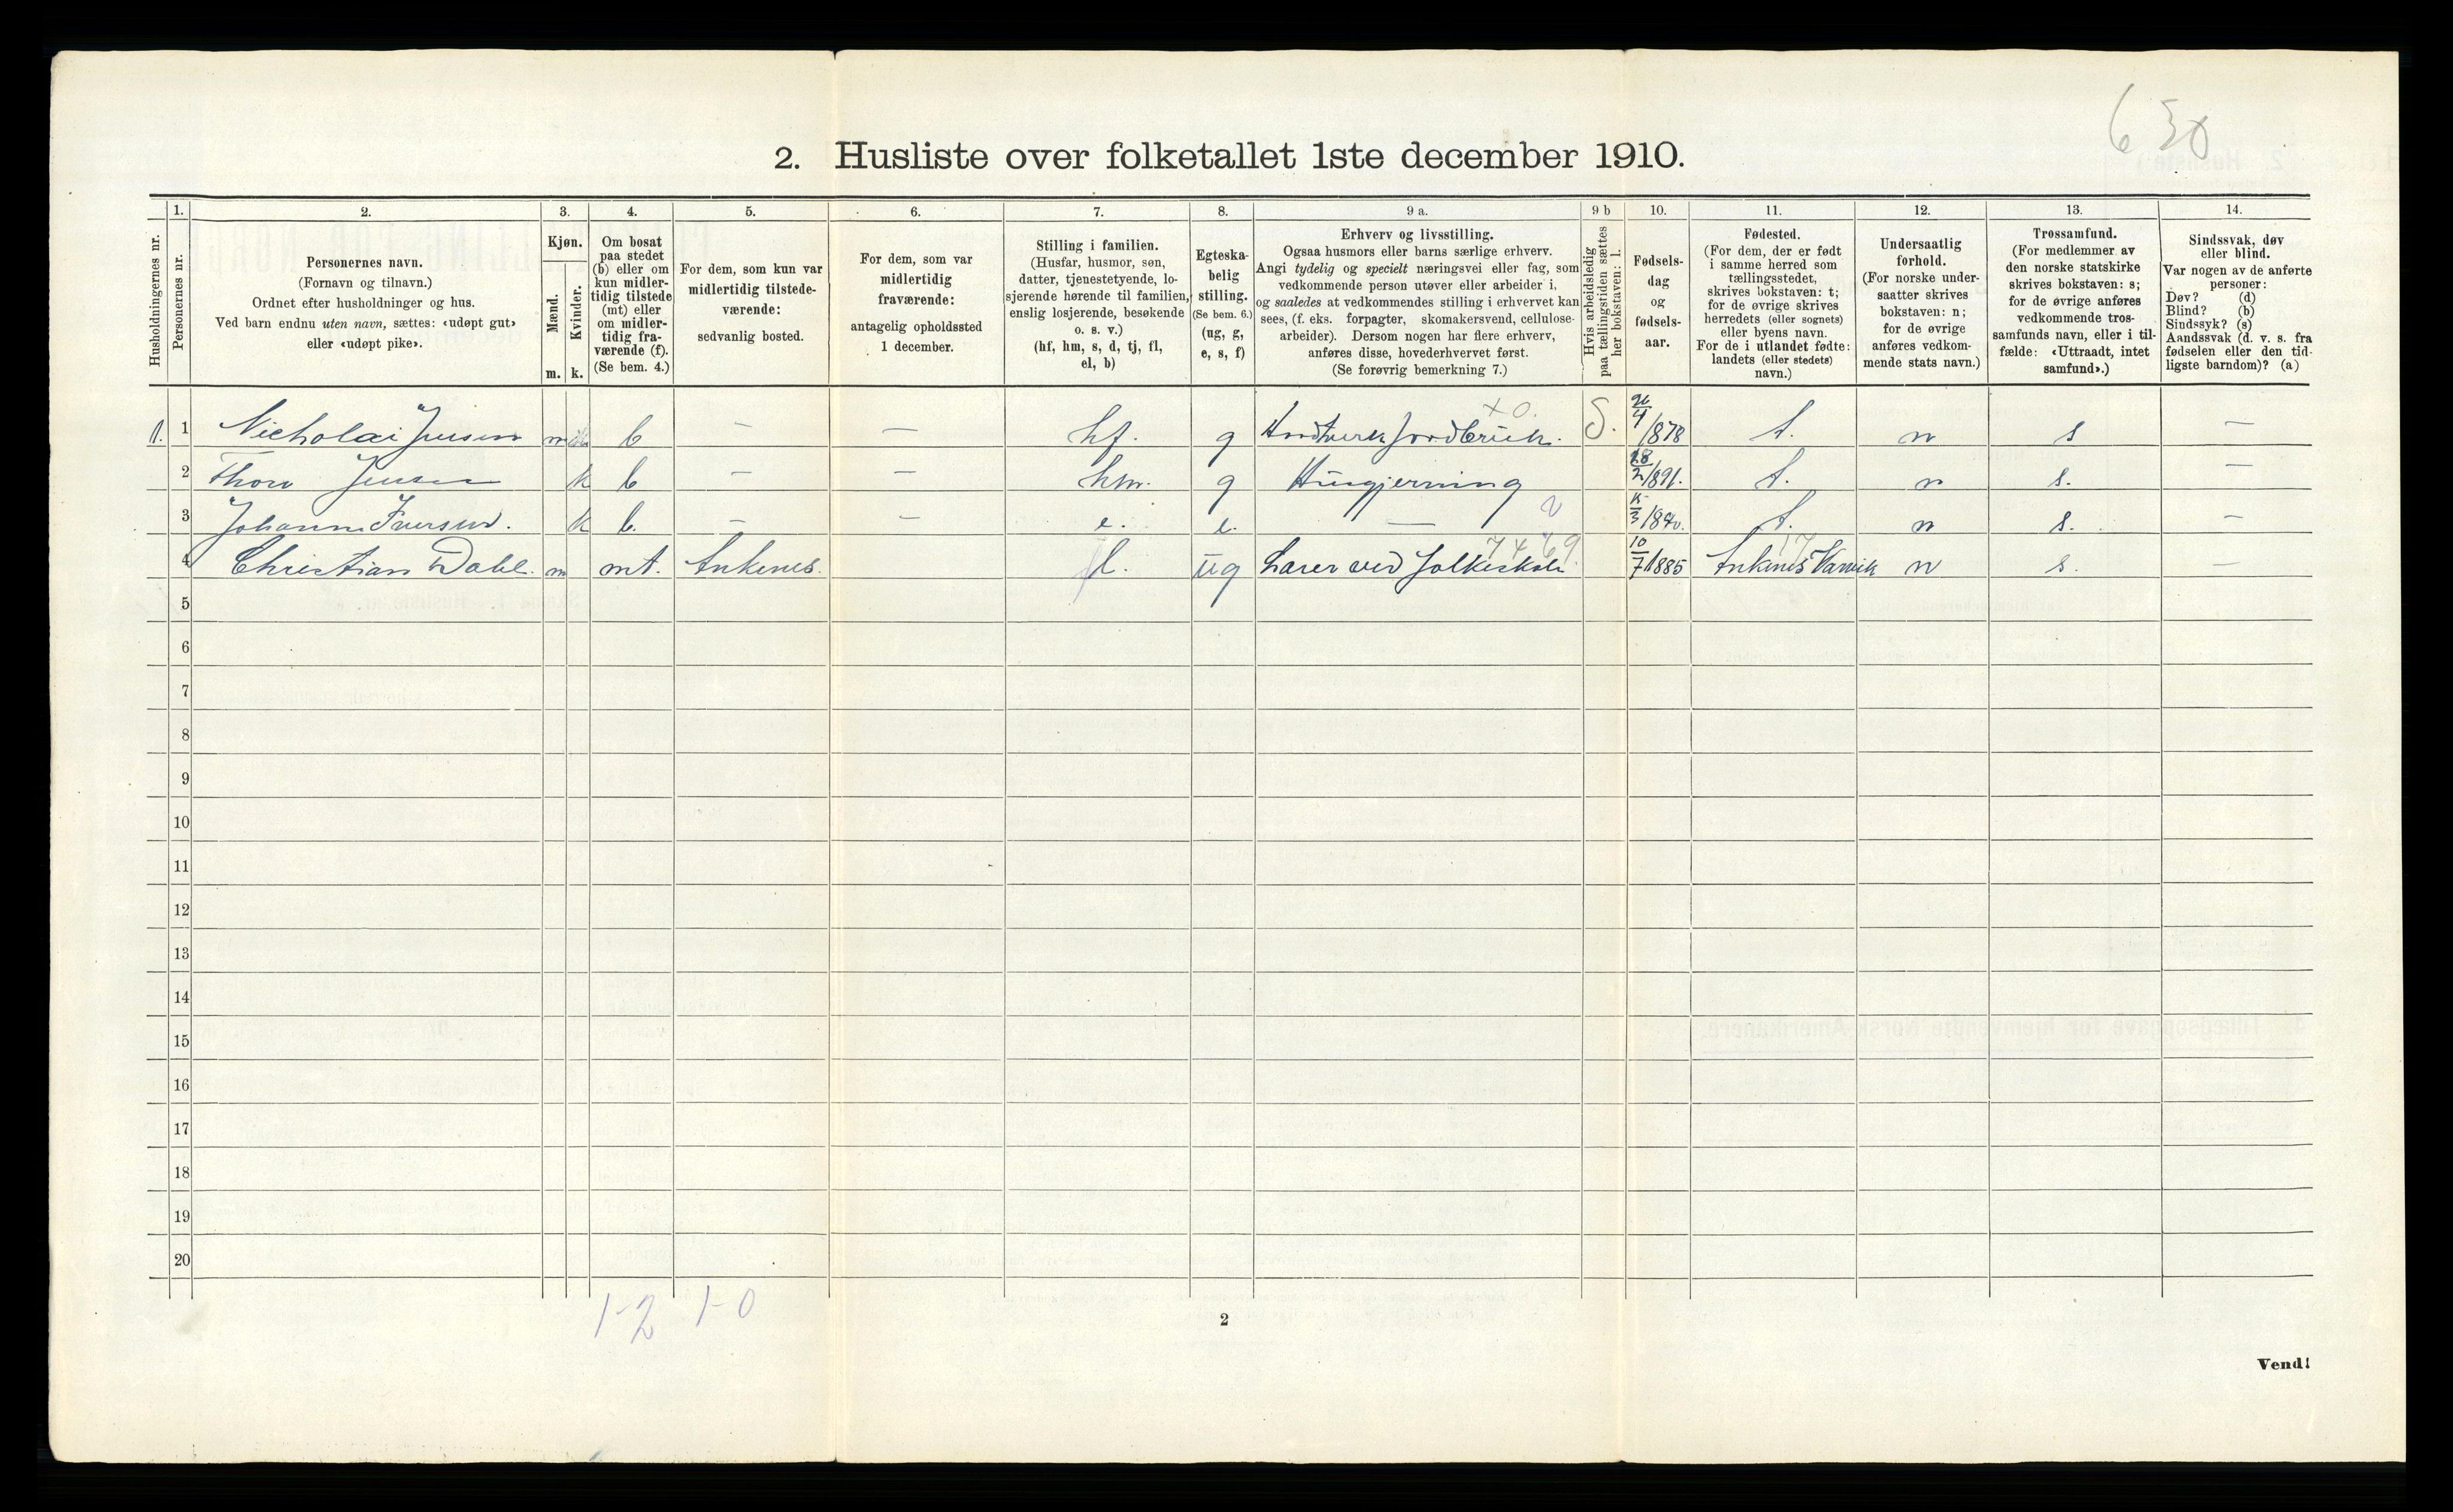 6 30
2. Husliste over folketallet 1ste december 1910.
Husholdningernes nr.
1.
Personernes nr.
2.
Personernes navn.
(Fornavn og tilnavn.)
Ordnet efter husholdninger og hus.
Ved barn endnu uten navn, sættes: «udøpt gut»
eller «udøpt pike».
3.
Kjøn.
Mænd.
m.
Kvinder.
k.
4.
Om bosat
paa stedet
(b) eller om
kun midler-
tidig tilstede
(mt) eller
om midler-
tidig fra-
værende (f).
(Se bem. 4.)
5.
For dem, som kun var
midlertidig tilstede-
værende:
sedvanlig bosted.
6.
For dem, som var
midlertidig
fraværende:
antagelig opholdssted
1 december.
7.
Stilling i familien.
(Husfar, husmor, søn,
datter, tjenestetyende, lo-
sjerende hørende til familien,
enslig losjerende, besøkende
o. s. v.)
(hf, hm, s, d, tj, fl,
el, b)
8.
Egteska-
belig
stilling.
(Se bem. 6.)
(ug, g,
e, s, f)
9 a.
Erhverv og livsstilling.
Ogsaa husmors eller barns særlige erhverv.
Angi tydelig og specielt næringsvei eller fag, som
vedkommende person utøver eller arbeider i,
og saaledes at vedkommendes stilling i erhvervet kan
sees, (f. eks. forpagter, skomakersvend, cellulose-
arbeider). Dersom nogen har flere erhverv,
anføres disse, hovederhvervet først.
(Se forøvrig bemerkning 7.)
9 b
Hvis arbeidsledig
paa tællingstiden sættes
her bokstaven: l.
10.
Fødsels-
dag
og
fødsels-
aar.
11.
Fødested.
(For dem, der er født
i samme herred som
tællingsstedet,
skrives bokstaven: t;
for de øvrige skrives
herredets (eller sognets)
eller byens navn.
For de i utlandet fødte:
landets (eller stedets)
navn.)
12.
Undersaatlig
forhold.
(For norske under-
saatter skrives
bokstaven: n;
for de øvrige
anføres vedkom-
mende stats navn.)
13.
Trossamfund.
(For medlemmer av
den norske statskirke
skrives bokstaven: s;
for de øvrige anføres
vedkommende tros-
samfunds navn, eller i til-
fælde: «Uttraadt, intet
samfund».)
14.
Sindssvak, døv
eller blind.
Var nogen av de anførte
personer:
Døv? (d)
Blind? (b)
Sindssyk? (s)
Aandssvak (d. v. s. fra
fødselen eller den tid-
ligste barndom)? (a)
1. 1 Nicholai Jensen m b — — hf. g jordbruk. S. 26/4 1878 t. n s —
2 Thora Jensen k b — — hm. g Husgjerning 18/2 1891. t. n s. —
3 Johanna Iversen. k b. — — e. e. — 15/3 1840. t. n s. —
4 Christian Dahl. m mt. Ankenes. fl. ug Lærer ved folkeskole 10/7 1885 Ankenes Narvik n s. —
5
6
7
8
9
10
11
12
13
14
15
16
17
18
19
20
1-2 1-0
2
Vend!